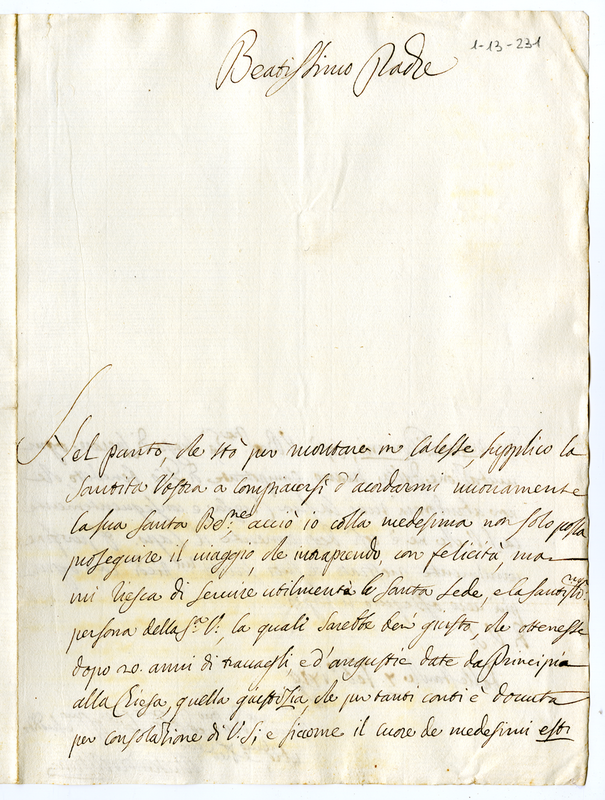 1-13-231
Beatissimo Padre
Nel punto, che stò per montare in Calesse, supplico la
Santità Vostra a compiacersi d'acordarmi nuovamente
la sua Santa Be:ne acciò io colla medesima non solo possa
proseguire il viaggio, che intraprendo, con felicità, ma
mi riesca di servire utilmente la Santa Sede, e la
persona della S.tà V: la quale sarebbe ben giusto, che otenesse
dopo 20. anni di travagli, e d'angustie date da Principi
alla Chiesa, quella giustizia, che per tanti conti è dovuta
per consolazione di V: S; e sicome il cuore de medesimi